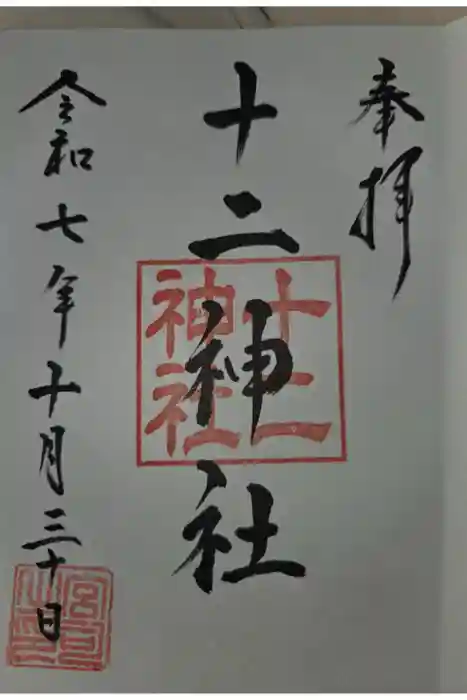 奉拝
十二神社
十二神社
令和七年十月三十日
宮司之印